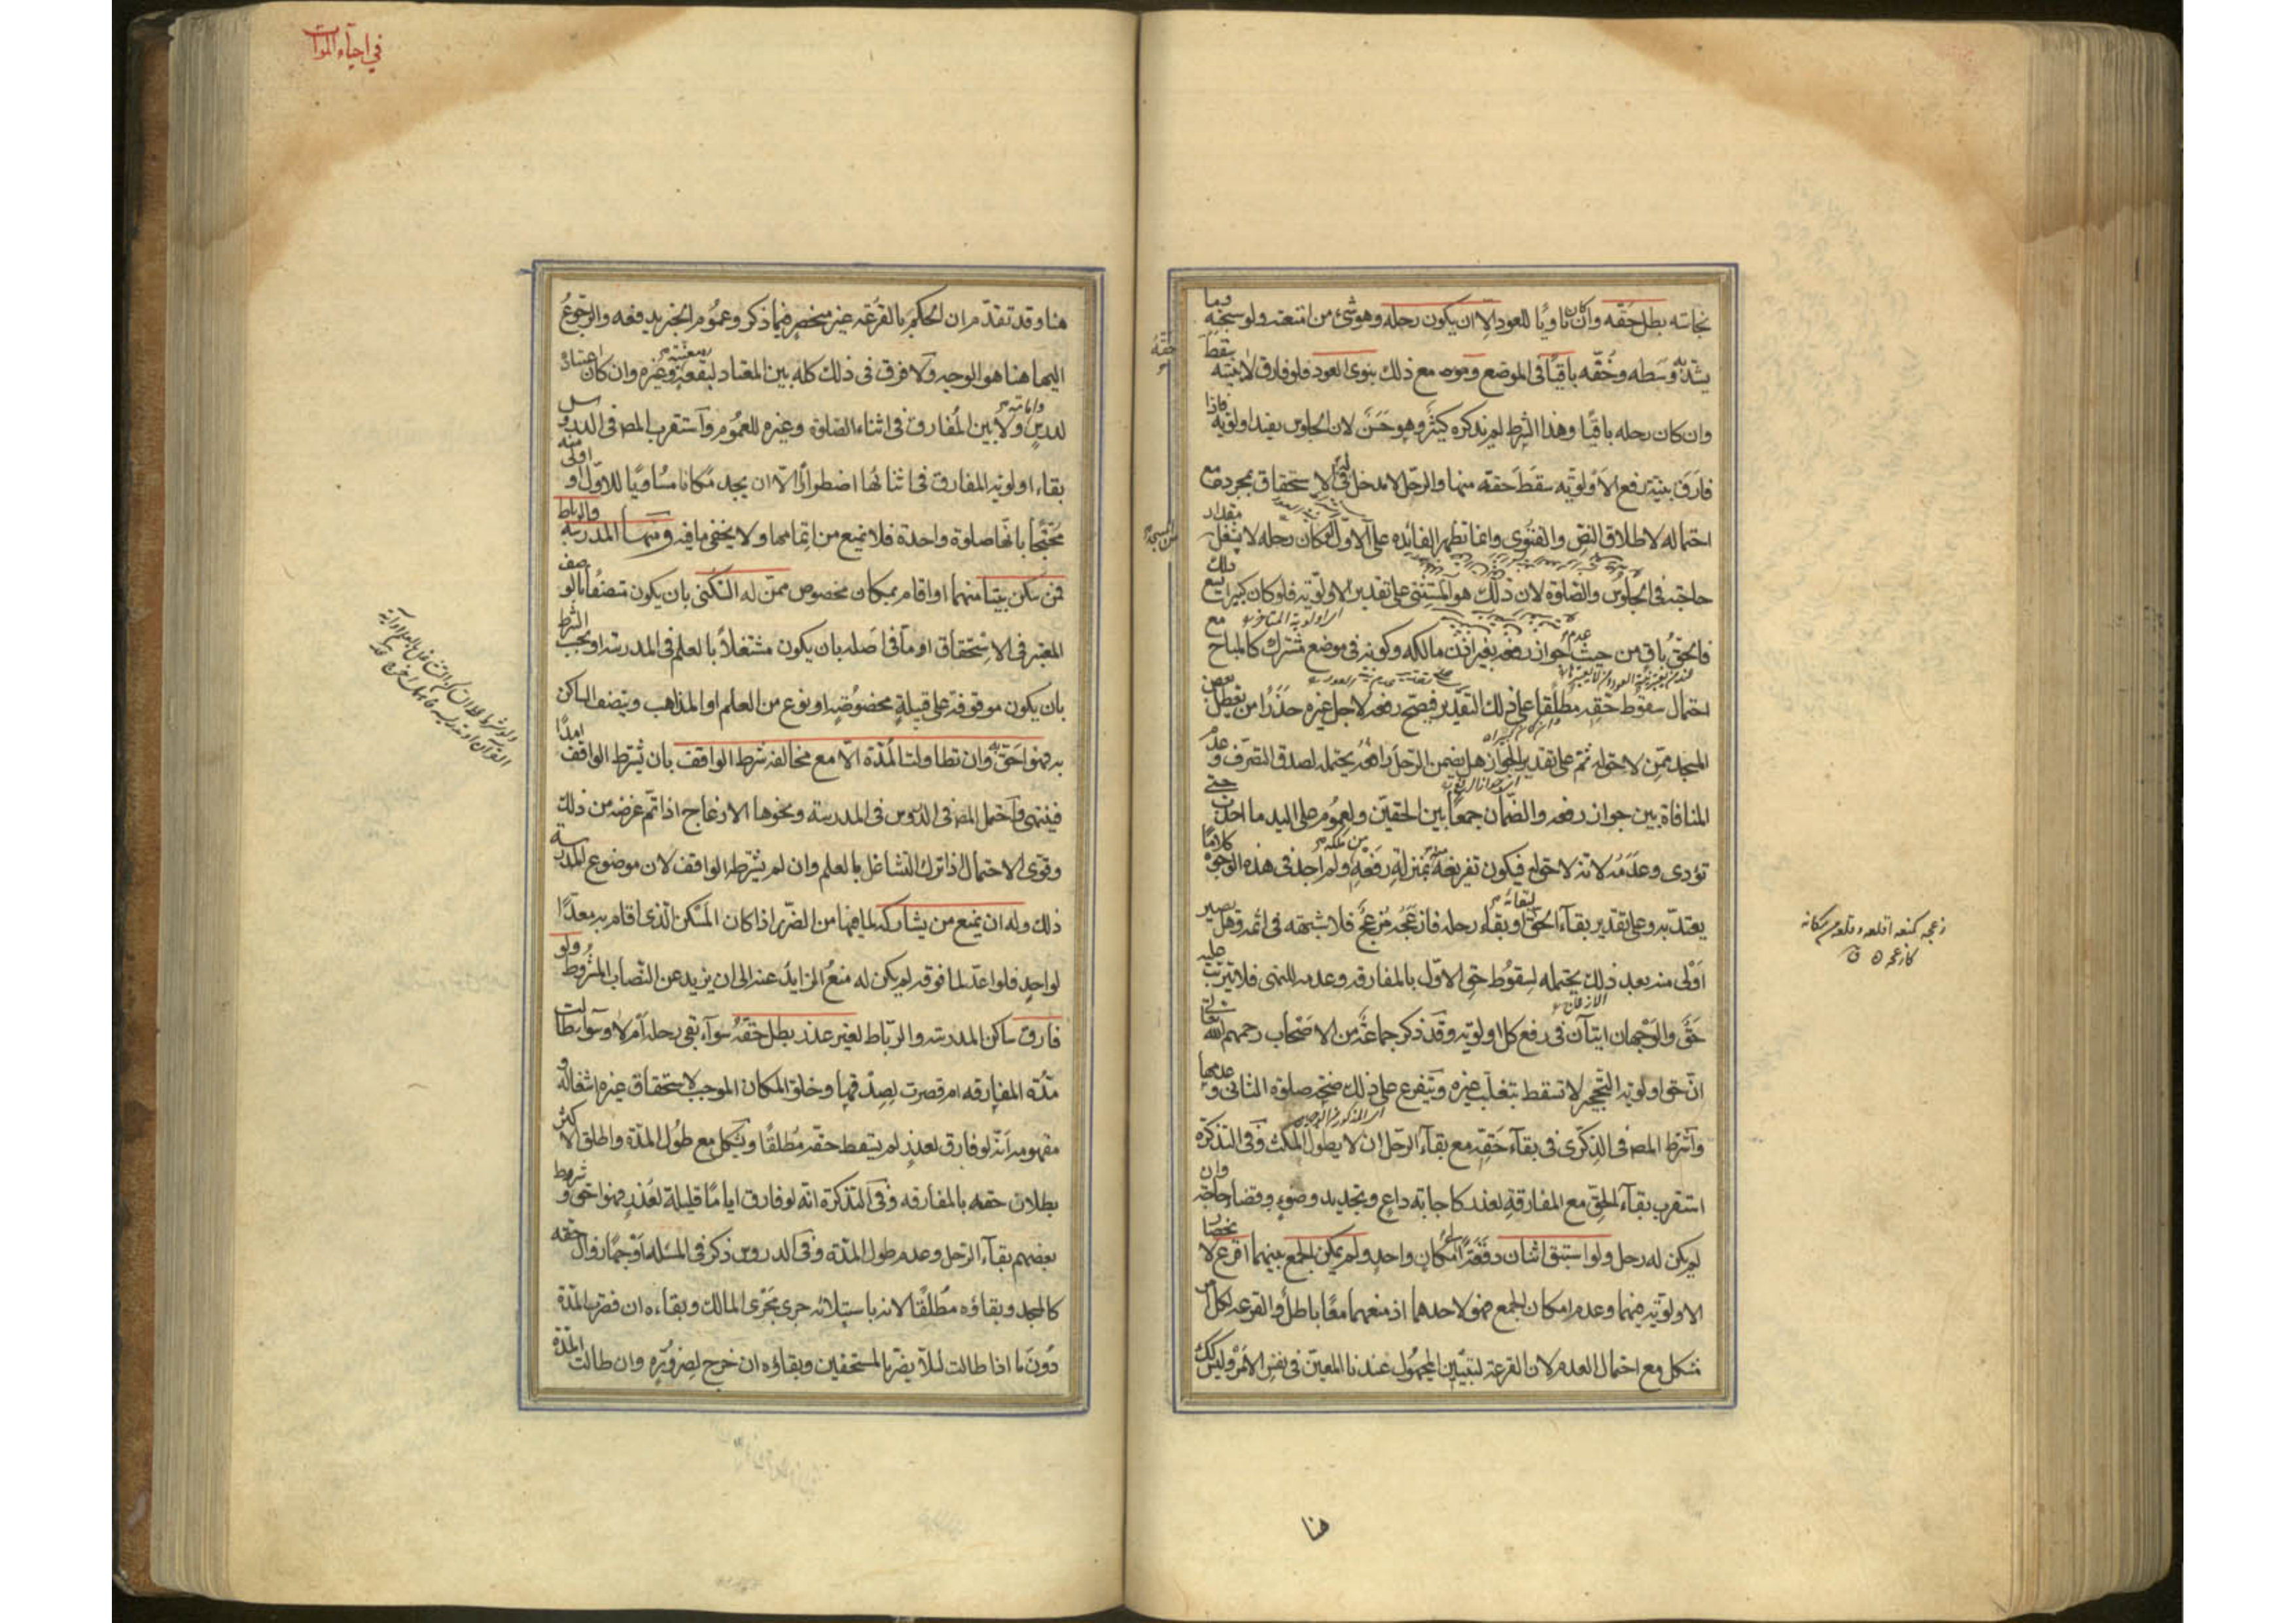 نجاسته بطل حقه وان كان ناويا للعود الا ان يكون رحله وهو شئ من امتعته ولو سبحته وما
يشد به وسطه وخفه باقيا في الموضع وهو مع ذلك ينوي العود فلو فارق لا بنيته سقط حقه
وان كان رحله باقيا وهذا الشرط لم يذكره كثير وهو حسن لان الجلوس يفيد اولوية فاذا
فارق بنية رفع الاولوية سقط حقه منها والرحل لا مدخل له في الاستحقاق بمجرده مع
احتماله لاطلاق النص والفتوى وانما تظهر الفائدة على الاول لو كان رحله لا يشغل من المسجد مقدار
حاجته في الجلوس والصلوة لان ذلك هو المستثنى على تقدير الاولوية فلو كان كبيرا يسع ذلك
فالحق باق من حيث عدم جواز رفعه بغير اذن مالكه وكونه في موضع مشترك كالمباح مع
احتمال سقوط حقه مطلقا على ذلك التقدير فيصح رفعه لاجل غيره حذرا من تعطيل بعض
المسجد ممن لا حق له ثم على تقدير الجواز هل يضمن الرحل رافعه يحتمله لصدق التصرف وعدم
المنافاة بين جواز رفعه والضمان جمعا بين الحقين ولعموم على اليد ما اخذت حتى
تؤدى وعدمه لانه لا حق له فيكون تفريغه منه بمنزلة رفعه من ملكه ولم اجد في هذه الوجوه كلاما
يعتد به وعلى تقدير بقاء الحق لبقائه او بقاء رحله فازعجه مزعج فلا شبهة في اثمه وهل يصير
اولى منه بعد ذلك يحتمله لسقوط حق الاول بالمفارقة وعدمه للنهى فلا يترتب عليه
حق والوجهان اتيان في رفع كل اولوية وقد ذكر جماعة من الاصحاب رحمهم الله تعالى
ان حق اولوية التحجير لا تسقط بتغلب غيره ويتفرع على ذلك صحة صلوة الثاني وعدمها
واشترط المصـ في الذكرى في بقاء حقه مع بقاء الرحل ان لا يطول المكث وفي التذكرة
استقرب بقاء الحق مع المفارقة لعذر كاجابة داع وتجديد وضوء وقضاء حاجة وان
لم يكن له رحل ولو استبق اثنان دفعة الى مكان واحد ولم يمكن الجمع بينهما اقرع لانحصار
الاولوية فيهما وعدم امكان الجمع فهو لاحدهما اذ منعهما معا باطل والقرعة لكل امر
مشكل مع احتمال العدم لان القرعة لتبيين المجهول عندنا المعين في نفس الامر وليس كذلك
هنا
زعجه كمنعه اقلعه وقلعه من مكانه
كازعجه ق
في احياء الموات
هنا وقد تقدم ان الحكم بالقرعة غير منحصر فيما ذكر وعموم الخبر يدفعه والرجوع
اليها هنا هو الوجه ولا فرق في ذلك كله بين المعتاد لبقعة معينة وغيره وان كان اعتياده
لدرس وامامة ولا بين المفارق في اثناء الصلوة وغيره للعموم واستقرب المصـ في الدروس
بقاء اولوية المفارق في اثنائها اضطرارا الا ان يجد مكانا مساويا للاول او اولى منه
محتجا بانها صلوة واحدة فلا يمنع من اتمامها ولا يخفى ما فيه ومنها المدرسة والرباط
فمن سكن بيتا منهما او اقام بمكان مخصوص ممن له السكنى بان يكون متصفا بالوصف
المعتبر في الاستحقاق اما في اصله بان يكون مشتغلا بالعلم في المدرسة او بحسب الشرط
بان يكون موقوفة على قبيلة مخصوصة او نوع من العلم او المذاهب ويتصف الساكن
به فهو احق به وان تطاولت المدة الا مع مخالفة شرط الواقف بان يشترط الواقف امدا
فينتهى واحتمل المصـ في الدروس في المدرسة ونحوها الازعاج اذا تم غرضه من ذلك
وقوى الاحتمال اذا ترك التشاغل بالعلم وان لم يشترط الواقف لان موضوع المدرسة
ذلك وله ان يمنع من يشاركه لما فيها من الضرر اذا كان المسكن الذى اقام به معدا
لواحد فلو اعد لما فوقه لم يكن له منع الزايد عنه الى ان يزيد عن النصاب المشروط ولو
فارق ساكن المدرسة والرباط لغير عذر بطل حقه سواء بقى رحله ام لا وسواء طالت
مدة المفارقة ام قصرت لصدقها وخلو المكان الموجب لاستحقاق غيره اشغاله و
مفهومه انه لو فارق لعذر لم يسقط حقه مطلقا ويشكل مع طول المدة واطلق الاكثر
بطلان حقه بالمفارقة وفي التذكرة انه لو فارق اياما قليلة لعذر فهو احق وشرط
بعضهم بقاء الرحل وعدم طول المدة وفي الدروس ذكر في المسئلة اوجها زوال حقه
كالمسجد وبقاؤه مطلقا لانه باستيلائه جرى مجرى المالك وبقاءه ان قصرت المدة
دون ما اذا طالت لئلا يضر بالمستحقين وبقاؤه ان خرج لضرورة وان طالت المدة